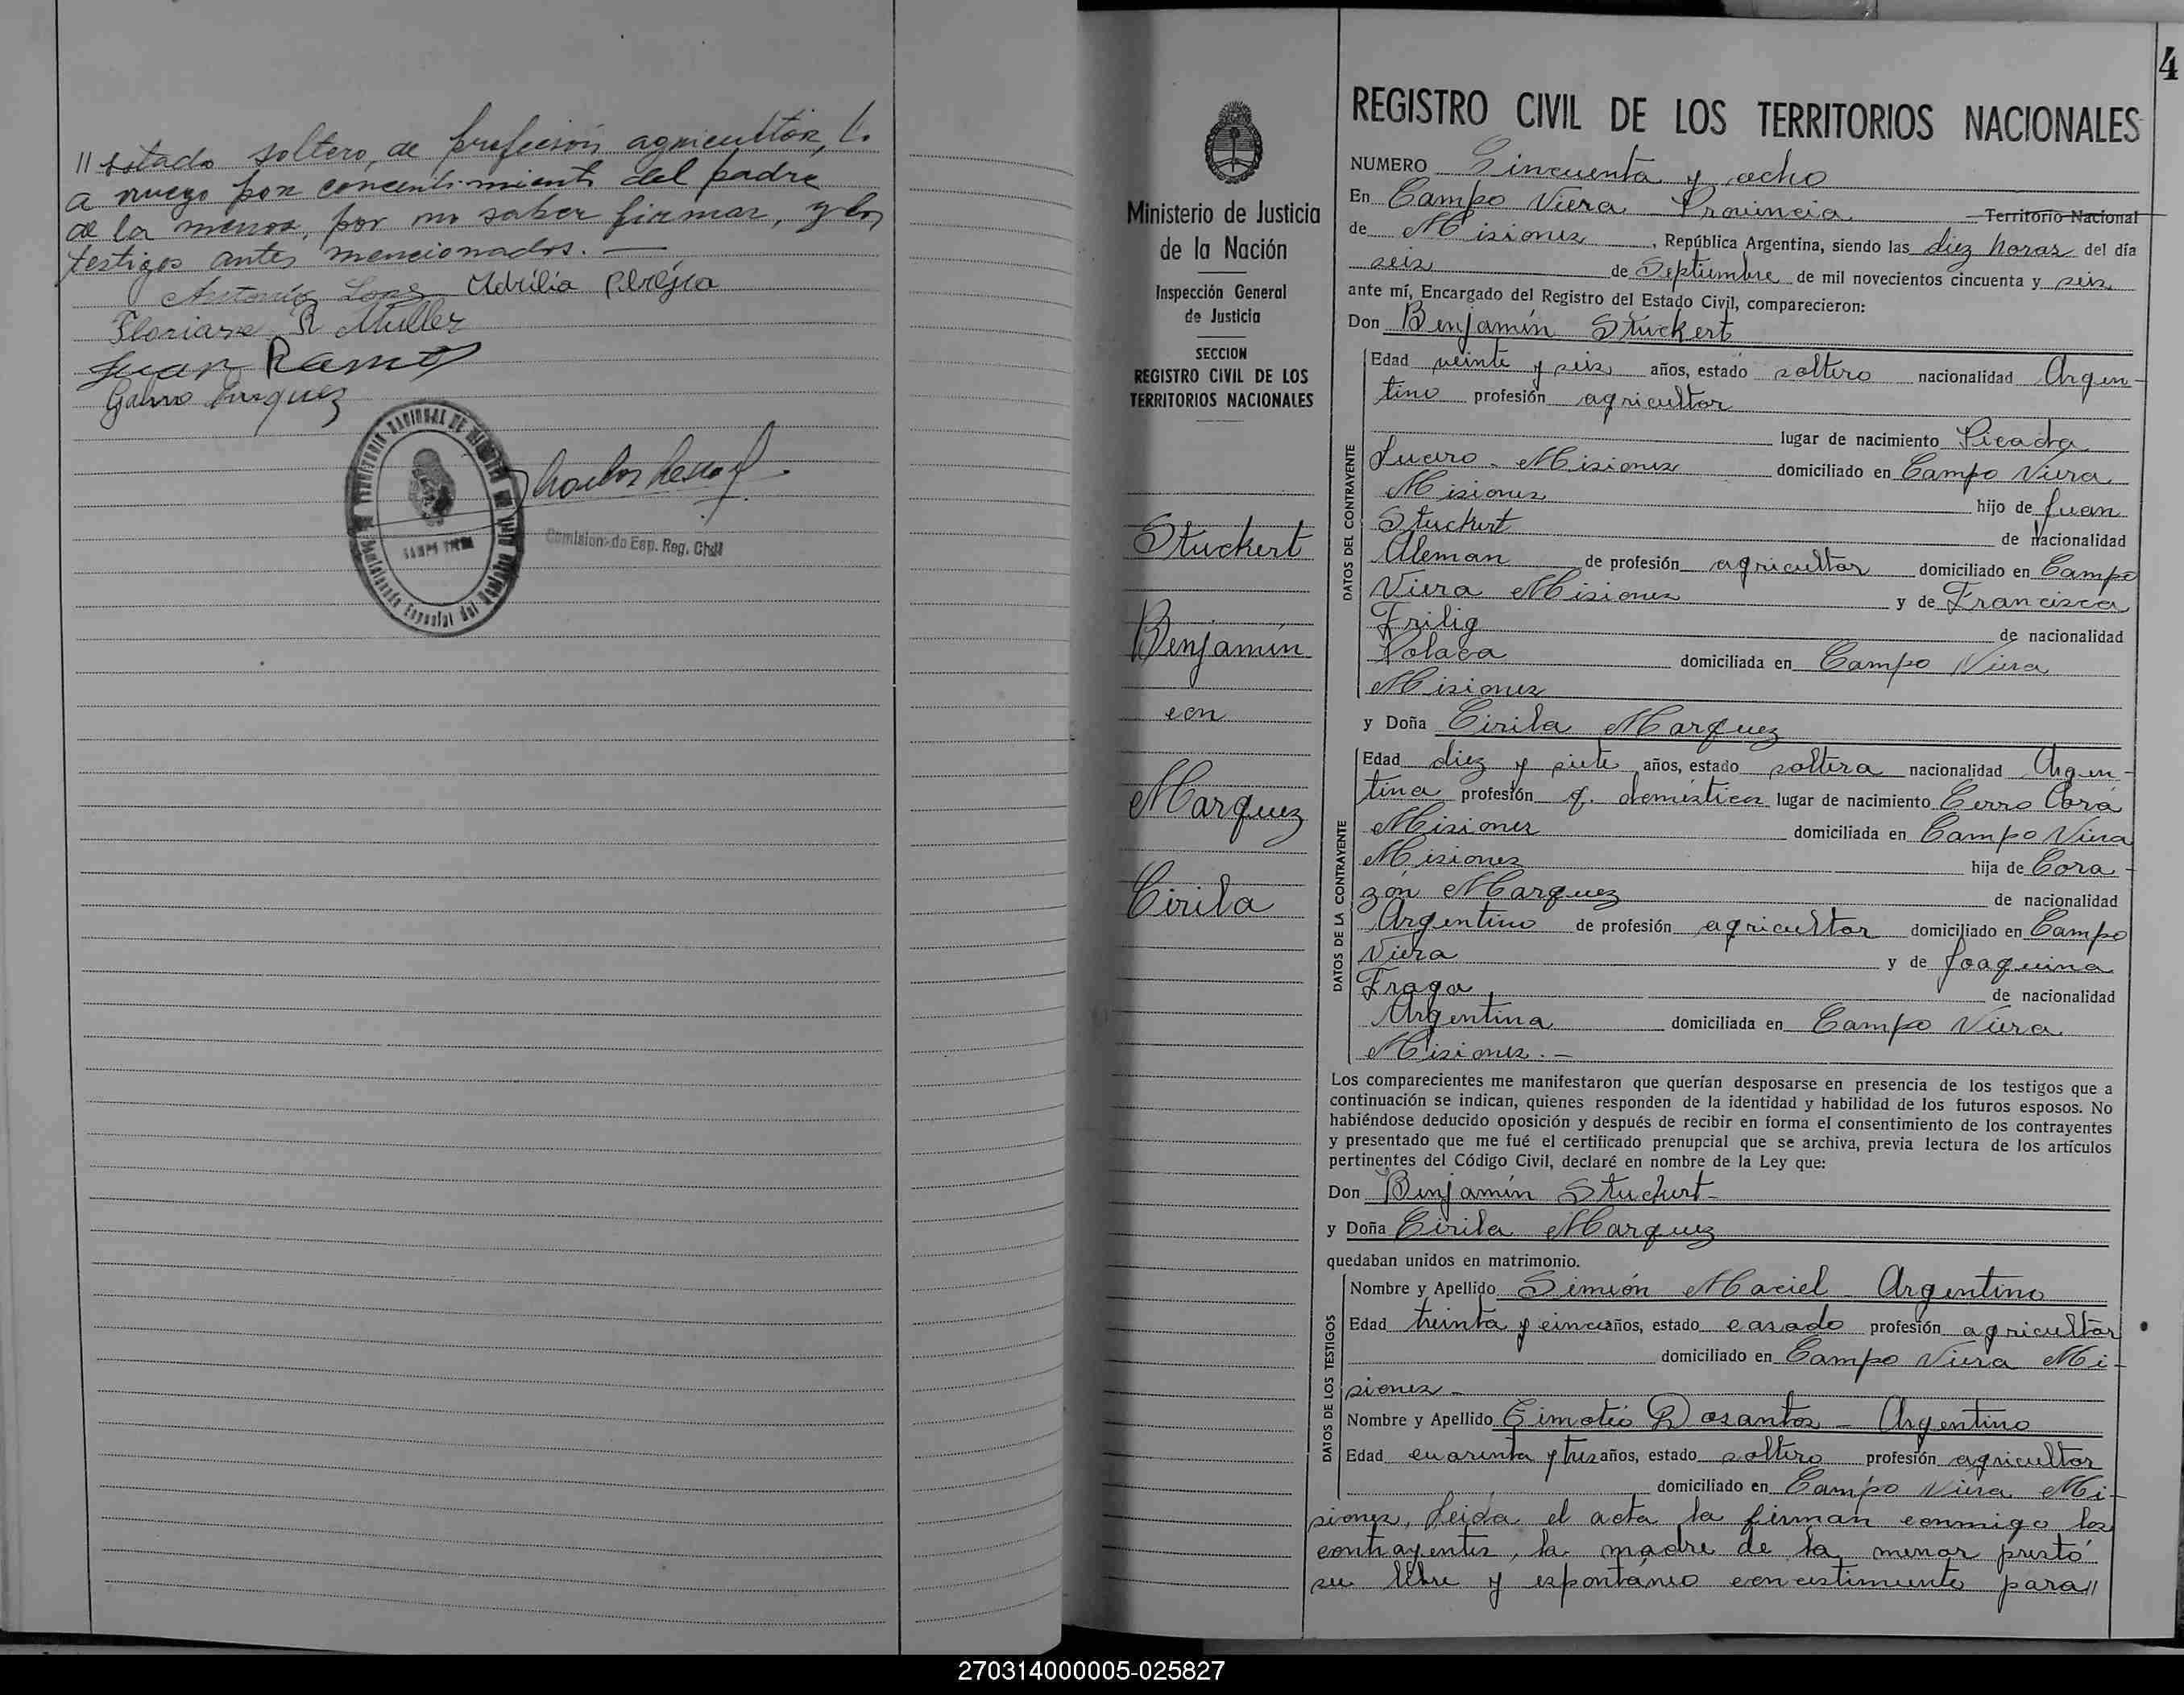 // estado soltero, de profesión agricultor, L.
a ruego por concentimiento del padre
de la menor, por no saber firmar, y los
testigos antes mencionados. —
Antonio
Floriano R Muller
Juan Ramos
Comisionado Esp. Reg. Civil
4
Ministerio de Justicia
de la Nación
Inspección General
de Justicia
SECCION
REGISTRO CIVIL DE LOS
TERRITORIOS NACIONALES
Stuckert
Benjamín
con
Marquez
Cirila
REGISTRO CIVIL DE LOS TERRITORIOS NACIONALES
NUMERO Cincuenta y ocho
En Campo Viera - Provincia Territorio Nacional
de Misiones, República Argentina, siendo las diez horas del día
seis de Septiembre de mil novecientos cincuenta y seis
ante mí, Encargado del Registro del Estado Civil, comparecieron:
Don Benjamín Stuckert
DATOS DEL CONTRAYENTE
Edad veinte y seis años, estado soltero nacionalidad Argen-
tino profesión agricultor
lugar de nacimiento Picada
Sueca - Misiones domiciliado en Campo Viera
Misiones hijo de Juan
Stuckert de nacionalidad
Aleman de profesión agricultor domiciliado en Campo
Viera Misiones y de Francisca
Frilig de nacionalidad
Polaca domiciliada en Campo Viera
Misiones
y Doña Cirila Marquez
DATOS DE LA CONTRAYENTE
Edad diez y siete años, estado soltera nacionalidad Argen-
tina profesión q. domésticos lugar de nacimiento Cerro Corá
Misiones domiciliada en Campo Viera
Misiones hija de Cora-
zón Marquez de nacionalidad
Argentino de profesión agricultor domiciliado en Campo
Viera y de Joaquina
Fraga de nacionalidad
Argentina domiciliada en Campo Viera
Misiones. —
Los comparecientes me manifestaron que querían desposarse en presencia de los testigos que a
continuación se indican, quienes responden de la identidad y habilidad de los futuros esposos. No
habiéndose deducido oposición y después de recibir en forma el consentimiento de los contrayentes
y presentado que me fué el certificado prenupcial que se archiva, previa lectura de los artículos
pertinentes del Código Civil, declaré en nombre de la Ley que:
Don Benjamín Stuckert -
y Doña Cirila Marquez
quedaban unidos en matrimonio.
DATOS DE LOS TESTIGOS
Nombre y Apellido Simión Maciel - Argentino
Edad treinta y cinco años, estado casado profesión agricultor
domiciliado en Campo Viera Mi-
siones -
Nombre y Apellido Timotéo Dosantos - Argentino
Edad cuarenta y tres años, estado soltero profesión agricultor
domiciliado en Campo Viera Mi-
siones, Leida el acta la firman conmigo los
contrayentes, la madre de la menor prestó
su libre y espontáneo concentimiento para //
270314000005-025827